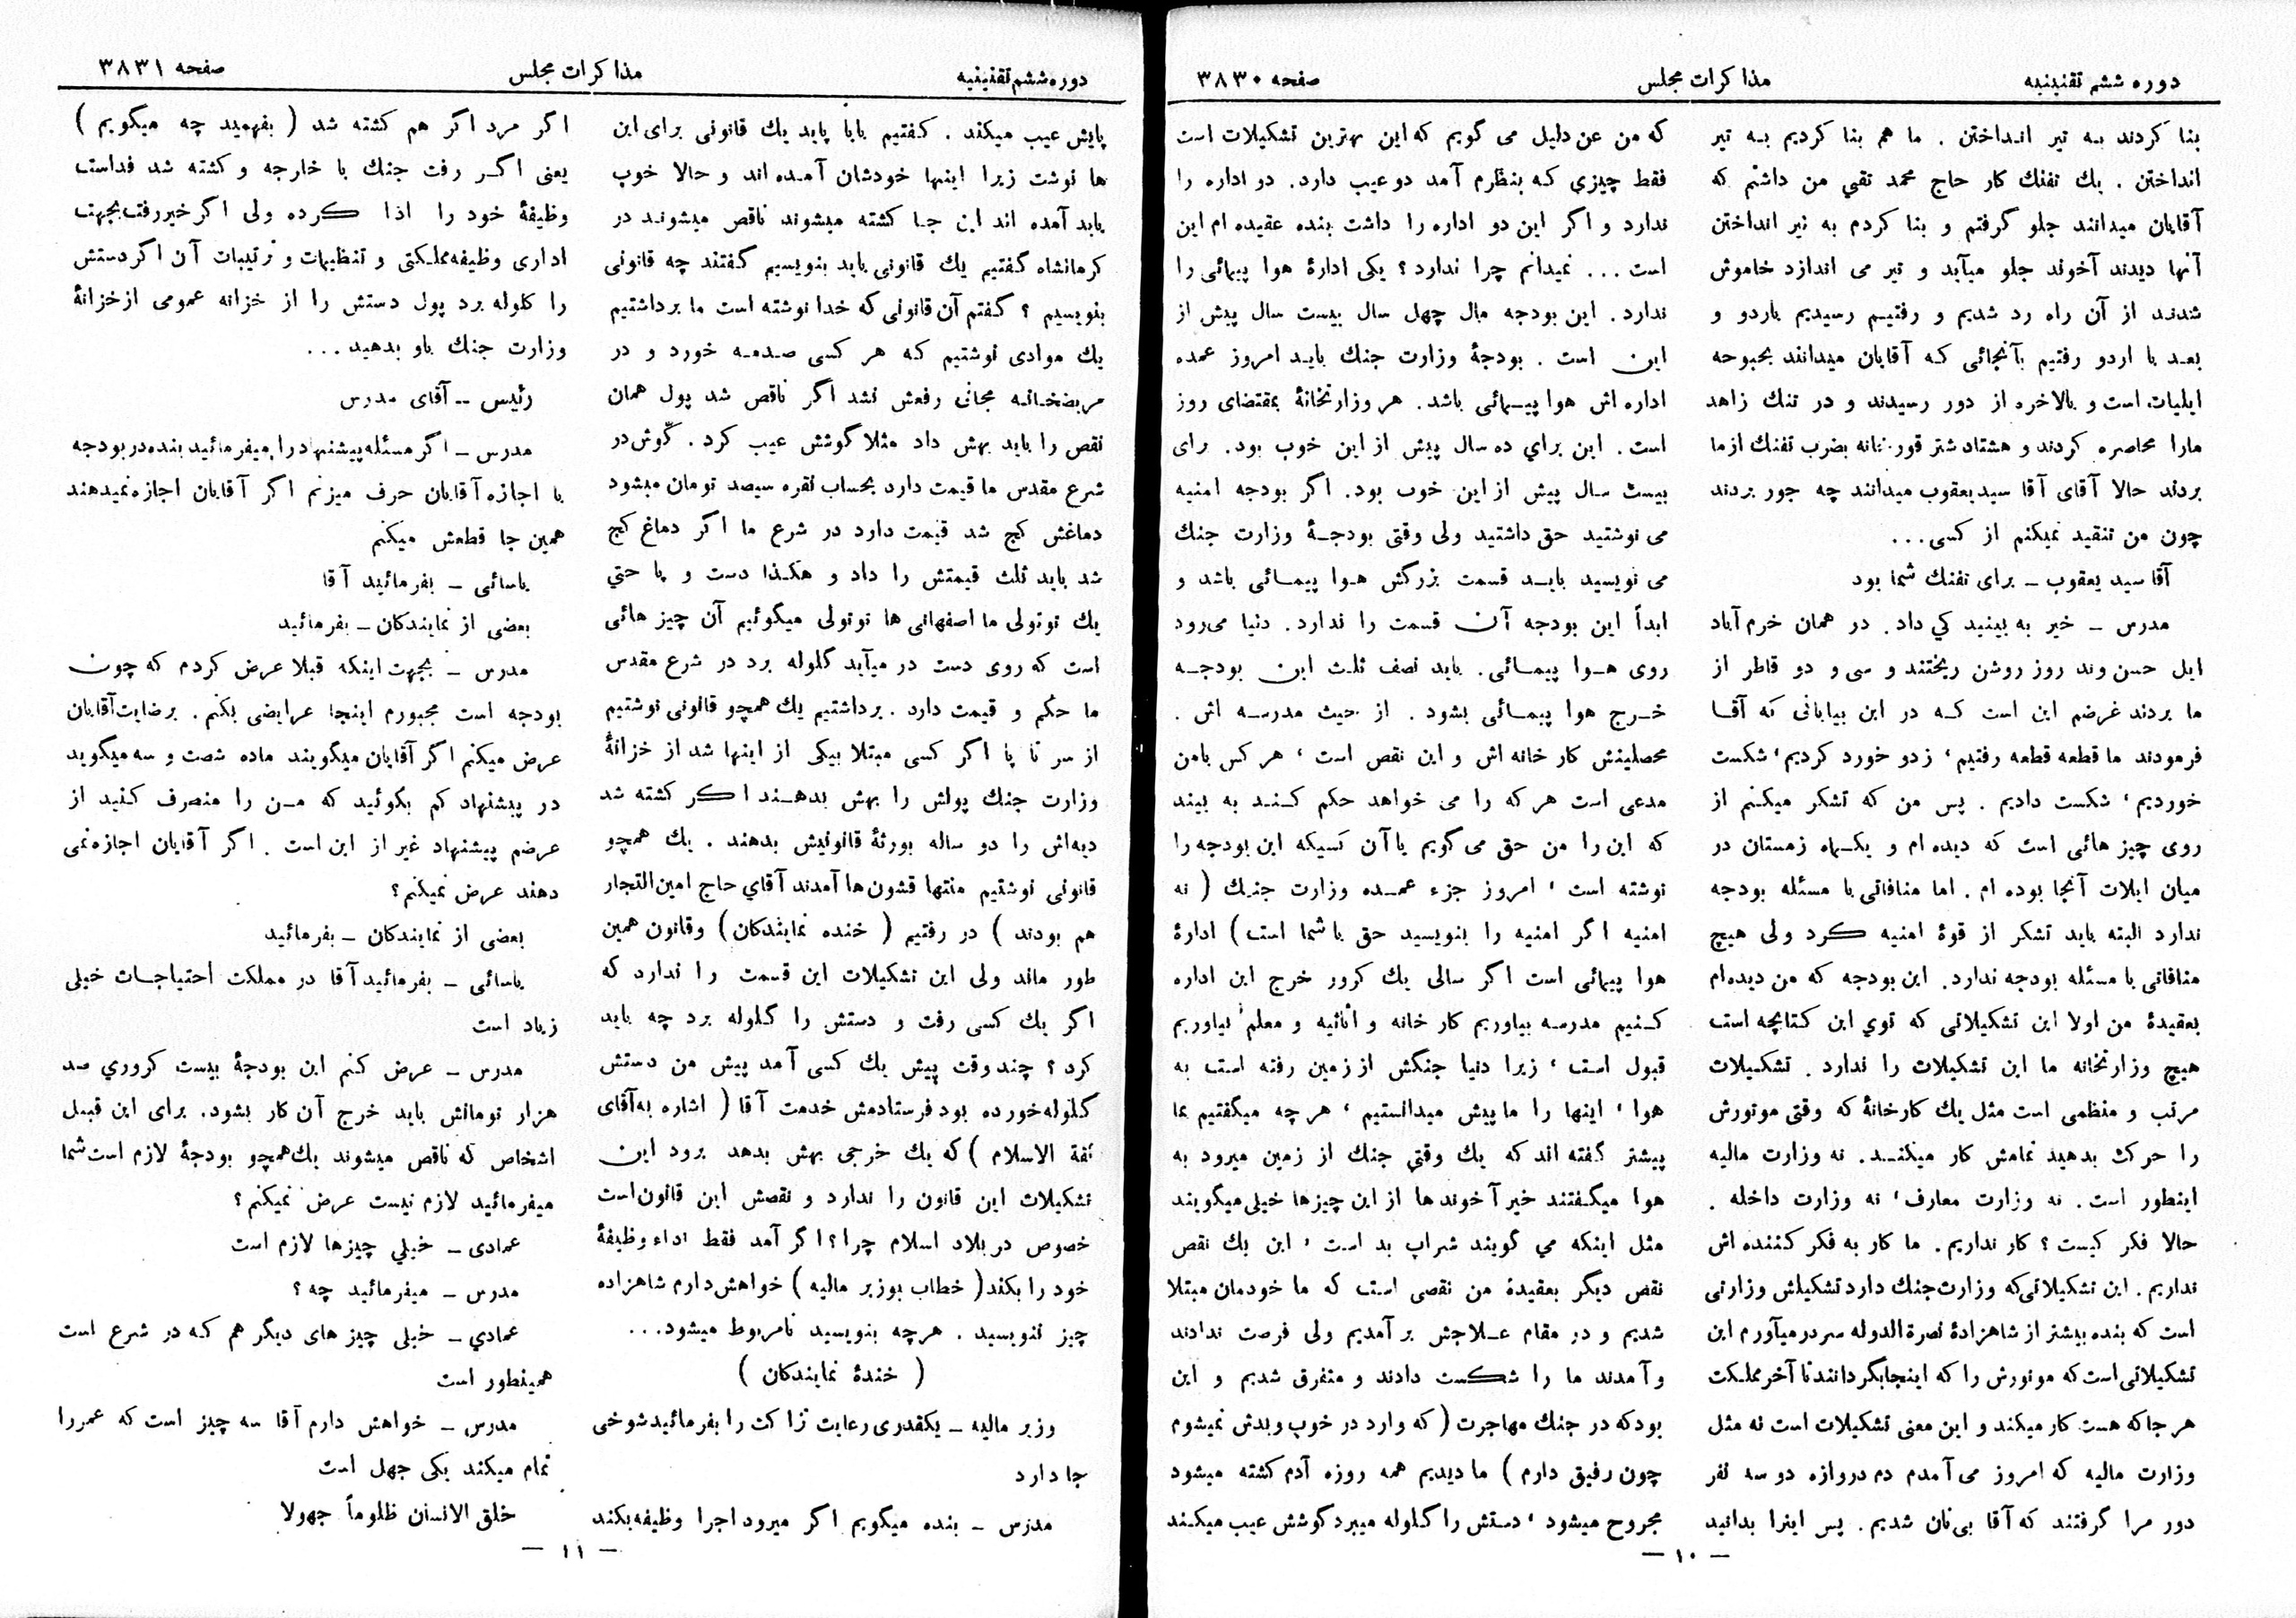 دوره ششم تقنینیه
مذاکرات مجلس
صفحه ۳۸۳۰
بنا کردند به تیر انداختن . ما هم بنا کردیم به تیر
انداختن . یك تفنك کار حاج محمد تقی من داشتم که
آقایان میدانند جلو گرفتم و بنا کردم به تیر انداختن
آنها دیدند آخوند جلو میآید و تیر می اندازد خاموش
شدند از آن راه رد شدیم و رفتیم رسیدیم باردو و
بعد با اردو رفتیم بآنجائی که آقایان میدانند بحبوحه
ایلیات است و بالاخره از دور رسیدند و در تنك زاهد
مارا محاصره کردند و هشتاد شتر قورخانه بضرب تفنك ازما
بردند حالا آقای آقا سید یعقوب میدانند چه جور بردند
چون من تنقید نمیکنم از کسی...
آقا سید یعقوب ـ برای تفنك شما بود
مدرس ـ خیر به بینید کی داد . در همان خرم آباد
ایل حسن وند روز روشن ریختند و سی و دو قاطر از
ما بردند غرضم این است که در این بیابانی که آقا
فرمودند ما قطعه قطعه رفتیم، زدو خورد کردیم، شکست
خوردیم، شکست دادیم . پس من که تشکر میکنم از
روی چیز هائی است که دیده ام و یکماه زمستان در
میان ایلات آنجا بوده ام . اما منافاتی با مسئله بودجه
ندارد البته باید تشکر از قوۀ امنیه کرد ولی هیچ
منافاتی با مسئله بودجه ندارد . این بودجه که من دیده‌ام
بعقیدۀ من اولا این تشکیلاتی که توی این کتابچه است
هیچ وزارتخانه ما این تشکیلات را ندارد . تشکیلات
مرتب و منظمی است مثل یك کارخانۀ که وقتی موتورش
را حرکت بدهید تمامش کار میکند. نه وزارت مالیه
اینطور است . نه وزارت معارف، نه وزارت داخله .
حالا فکر کیست ؟ کار نداریم . ما کار به فکر کننده اش
نداریم . این تشکیلاتی که وزارت جنك دارد تشکیلش وزارتی
است که بنده بیشتر از شاهزادۀ نصرة الدوله سردر میآورم این
تشکیلاتی است که موتورش را که اینجا بگردانند تا آخر مملکت
هر جا که هست کار میکند و این معنی تشکیلات است نه مثل
وزارت مالیه که امروز می آمدم دم دروازه دو سه نفر
دور مرا گرفتند که آقا بی نان شدیم . پس اینرا بدانید
که من عن دلیل می گویم که این بهترین تشکیلات است
فقط چیزی که بنظرم آمد دو عیب دارد . دو اداره را
ندارد و اگر این دو اداره را داشت بنده عقیده ام این
است ... نمیدانم چرا ندارد ؟ یکی ادارۀ هوا پیمائی را
ندارد . این بودجه مال چهل سال بیست سال پیش از
این است . بودجۀ وزارت جنك باید امروز عمده
اداره اش هوا پیمائی باشد . هر وزارتخانۀ بمقتضای روز
است . این برای ده سال پیش از این خوب بود . برای
بیست سال پیش از این خوب بود . اگر بودجه امنیه
می نوشتید حق داشتید ولی وقتی بودجۀ وزارت جنك
می نویسید باید قسمت بزرگش هوا پیمائی باشد و
ابداً این بودجه آن قسمت را ندارد . دنیا می‌رود
روی هوا پیمائی . باید نصف ثلث این بودجه
خرج هوا پیمائی بشود . از حیث مدرسه اش .
محصلینش کار خانه اش و این نقص است، هر کس بامن
مدعی است هر که را می خواهد حکم کند به بیند
که این را من حق می گویم یا آن کسیکه این بودجه را
نوشته است، امروز جزء عمده وزارت جنك ( نه
امنیه اگر امنیه را بنویسید حق با شما است ) ادارۀ
هوا پیمائی است اگر سالی یك کرور خرج این اداره
کنیم مدرسه بیاوریم کار خانه و اثاثیه و معلم بیاوریم
قبول است، زیرا دنیا جنگش از زمین رفته است به
هوا، اینها را ما پیش میدانستیم، هر چه میگفتیم بما
پیشتر گفته اند که یك وقتی جنك از زمین میرود به
هوا میگفتند خیر آخوند ها از این چیزها خیلی میگویند
مثل اینکه می گویند شراب بد است، این یك نقص
نقص دیگر بعقیدۀ من نقصی است که ما خودمان مبتلا
شدیم و در مقام علاجش بر آمدیم ولی فرصت ندادند
و آمدند ما را شکست دادند و متفرق شدیم و این
بود که در جنك مهاجرت ( که وارد در خوب وبدش نمیشوم
چون رفیق دارم ) ما دیدیم همه روزه آدم کشته میشود
مجروح میشود، دستش را گلوله میبرد گوشش عیب میکند
— ۱۰ —
دوره ششم تقنینیه
مذاکرات مجلس
صفحه ۳۸۳۱
پایش عیب میکند . گفتیم بابا باید یك قانونی برای این
ها نوشت زیرا اینها خودشان آمده اند و حالا خوب
یابد آمده اند این جا کشته میشوند ناقص میشوند در
کرمانشاه گفتیم یك قانونی باید بنویسیم گفتند چه قانونی
بنویسیم ؟ گفتم آن قانونی که خدا نوشته است ما برداشتیم
یك موادی نوشتیم که هر کسی صدمه خورد و در
مریضخانه مجانی رفعش نشد اگر ناقص شد پول همان
نقص را باید بهش داد مثلا گوشش عیب کرد . گوش در
شرع مقدس ما قیمت دارد بحساب نقره سیصد تومان میشود
دماغش کج شد قیمت دارد در شرع ما اگر دماغ کج
شد باید ثلث قیمتش را داد و هکذا دست و پا حتی
یك توتولی ما اصفهانی ها توتولی میگوئیم آن چیز هائی
است که روی دست در میآید گلوله برد در شرع مقدس
ما حکم و قیمت دارد . برداشتیم یك همچو قانونی نوشتیم
از سر تا پا اگر کسی مبتلا بیکی از اینها شد از خزانۀ
وزارت جنك پولش را بهش بدهند اگر کشته شد
دیه‌اش را دو ساله بورثۀ قانونیش بدهند . یك همچو
قانونی نوشتیم منتها قشون ها آمدند آقای حاج امین التجار
هم بودند ) در رفتیم ( خنده نمایندکان ) وقانون همین
طور ماند ولی این تشکیلات این قسمت را ندارد که
اگر یك کسی رفت و دستش را گلوله برد چه باید
کرد ؟ چند وقت پیش یك کسی آمد پیش من دستش
گلوله خورده بود فرستادمش خدمت آقا ( اشاره به آقای
ثقة الاسلام ) که یك خرجی بهش بدهد برود این
تشکیلات این قانون را ندارد و نقصش این قانون است
خصوص در بلاد اسلام چرا ؟ اگر آمد فقط اداء وظیفۀ
خود را بکند ( خطاب بوزیر مالیه ) خواهش دارم شاهزاده
چیز ننویسید . هرچه بنویسید نامربوط میشود...
( خندۀ نمایندکان )
وزیر مالیه ـ یکقدری رعایت نزاکت را بفرمائید شوخی
جا دارد
مدرس ـ بنده میگویم اگر میرود اجرا وظیفه بکند
اگر مرد اگر هم کشته شد ( بفهمید چه میگویم )
یعنی اگر رفت جنك با خارجه و کشته شد فداست
وظیفۀ خود را اذا کرده ولی اگر خیر رفت بجهت
اداری وظیفه مملکتی و تنظیمات و ترتیبات آن اگر دستش
را گلوله برد پول دستش را از خزانه عمومی از خزانۀ
وزارت جنك باو بدهید ...
رئیس ــ آقای مدرس
مدرس ـ اگر مسئله پیشنهاد را میفرمائید بنده در بودجه
با اجازه آقایان حرف میزنم اگر آقایان اجازه نمیدهند
همین جا قطعش میکنم
یاسائی ـ بفرمائید آقا
بعضی از نمایندکان ـ بفرمائید
مدرس ـ بجهت اینکه قبلا عرض کردم که چون
بودجه است مجبورم اینجا عرایضی بکنم . برضایت آقایان
عرض میکنم اگر آقایان میگویند ماده شصت و سه میگوید
در پیشنهاد کم بگوئید که من را منصرف کنید از
عرضم پیشنهاد غیر از این است . اگر آقایان اجازه نمی
دهند عرض نمیکنم ؟
بعضی از نمایندکان ـ بفرمائید
یاسائی ـ بفرمائید آقا در مملکت احتیاجات خیلی
زیاد است
مدرس ـ عرض کنم این بودجۀ بیست کروری صد
هزار تومانش باید خرج آن کار بشود . برای این قبیل
اشخاص که ناقص میشوند یك همچو بودجۀ لازم است شما
میفرمائید لازم نیست عرض نمیکنم ؟
عمادی ـ خیلی چیزها لازم است
مدرس ـ میفرمائید چه ؟
عمادی ـ خیلی چیز های دیگر هم که در شرع است
همینطور است
مدرس ـ خواهش دارم آقا سه چیز است که عمر را
تمام میکند یکی جهل است
خلق الانسان ظلوماً جهولا
— ۱۱ —